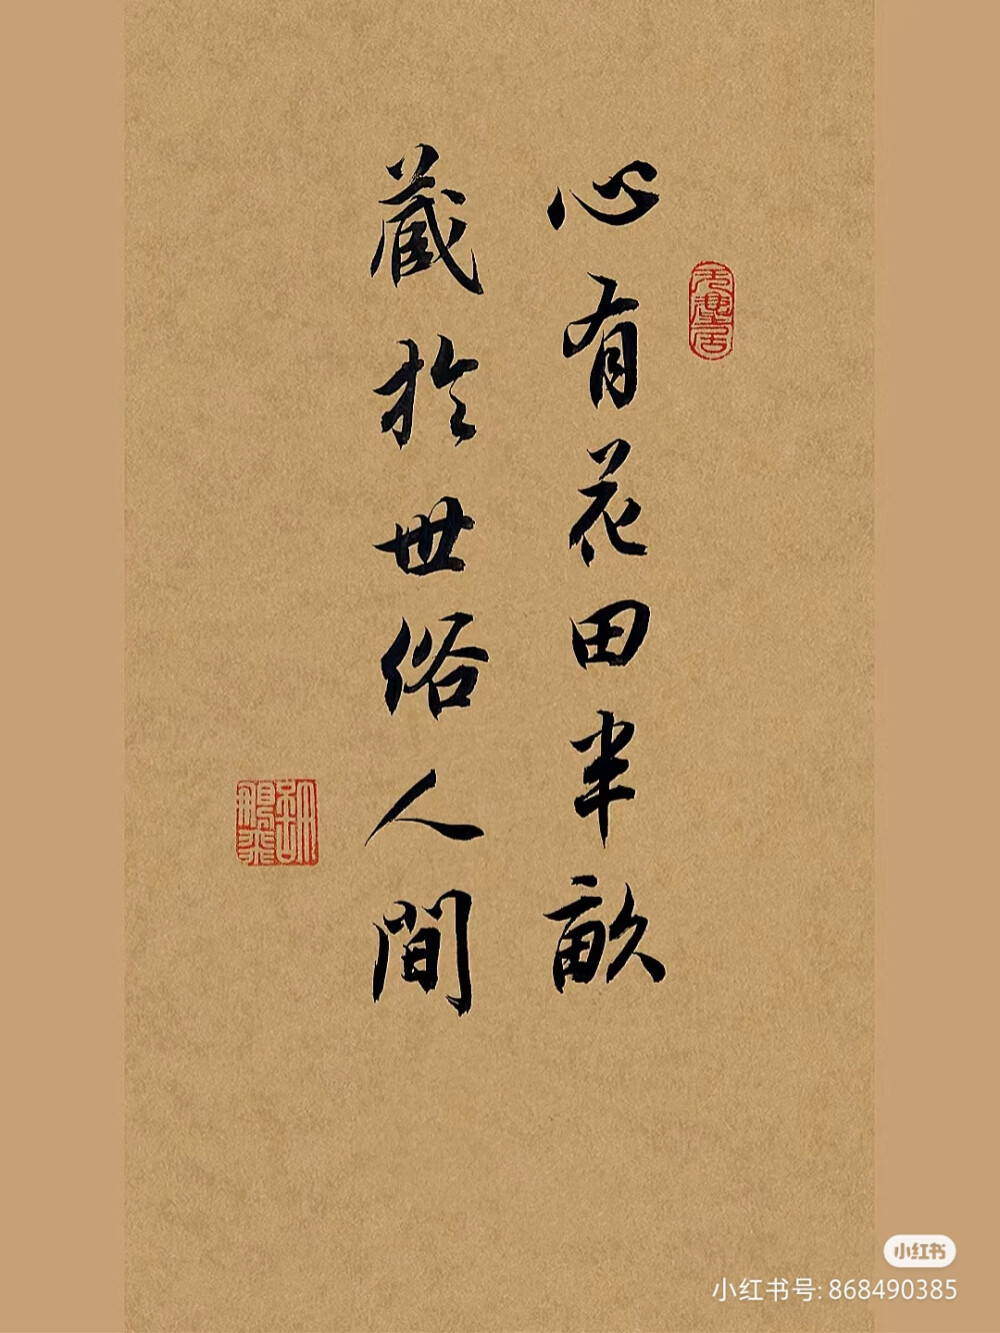 心有花田半畝
藏於世俗人間
小红书
小红书号: 868490385